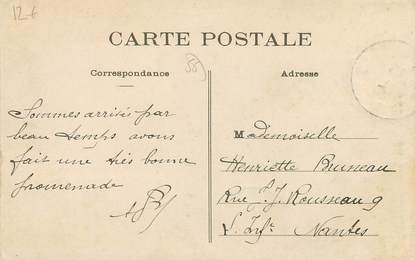 12 f
CARTE POSTALE
Correspondance
55
Adresse
Sommes arrivés par
beau temps avons
fait une très bonne
promenade
Mademoiselle
Henriette Bruneau
Rue J. J. Rousseau 9
L. Infre Nantes